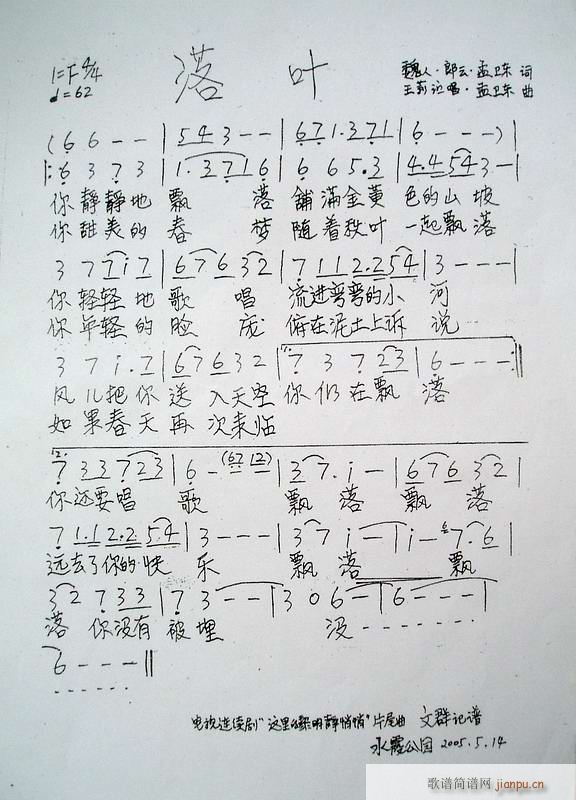 落叶
1=F 4/4
♩=62
魏人·郎云·孟卫东 词
王莉记唱·孟卫东 曲
(6 6 - - | 5 4 3 - - | 6 7 1·3 7 1 | 6 - - -) |
|: 6 3 7 3 | 1·3 7 1 6 | 6 6 5·3 | 4·4 5 4 3 - |
你静静地飘 落 铺满金黄 色的山坡
你甜美的春 梦 随着秋叶 一起飘落
3 7 7 i 7 | 6 7 6 3 2 | 7 1 1 2·2 5 4 | 3 - - - |
你轻轻地歌 唱 流进弯弯的小 河
你年轻的脸 庞 俯在泥土上诉 说
3 7 i·7 | 6 7 6 3 2 | 7 3 7 2 3 | 6 - - - :||
风儿把你送 入天空你仍在飘 落
如果春天再 次来临
7 3 3 7 2 3 | 6 - (6 7 1 2) | 3 7·i - | 6 7 6 3 2 |
你还要唱 歌 飘 落 飘 落
7 1·1 2·2 5 4 | 3 - - - | 3 7 i - | i - 6 7·6 |
远去了你的快 乐 飘 落 飘
3 2 7 3 3 | 7 3 - - | 3 0 6 - | 6 - - - |
落 你没有 被埋 没 - - - - - - -
6 - - - ||
电视连续剧"这里的黎明静悄悄"片尾曲 文群记谱
水霞公园 2005.5.14
歌谱简谱网
jianpu.cn